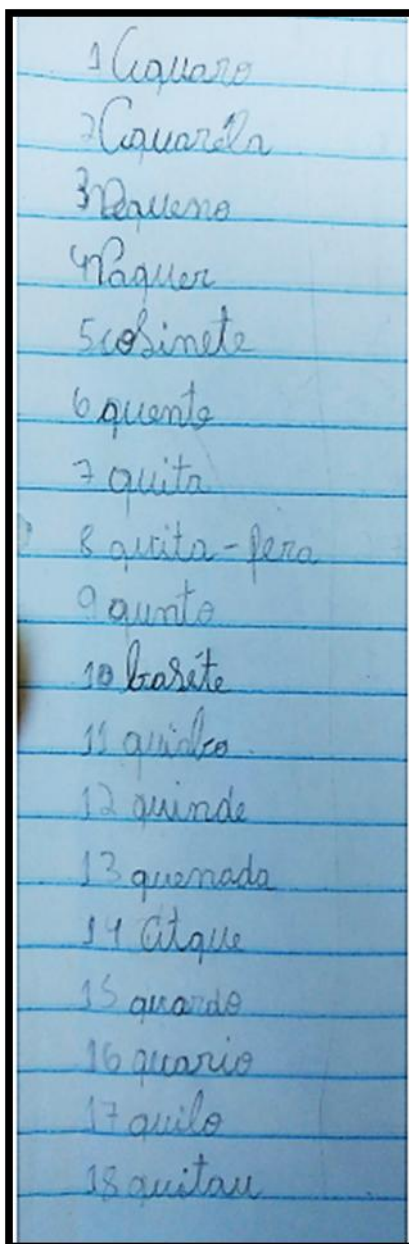 1 Aquaro
2 Aquaréla
3 Pequeno
4 Paquer
5 cosinete
6 quente
7 quita
8 quita-fera
9 qunto
10 basête
11 quinbo
12 quinde
13 quenada
14 atque
15 quardo
16 quario
17 quilo
18 quitau